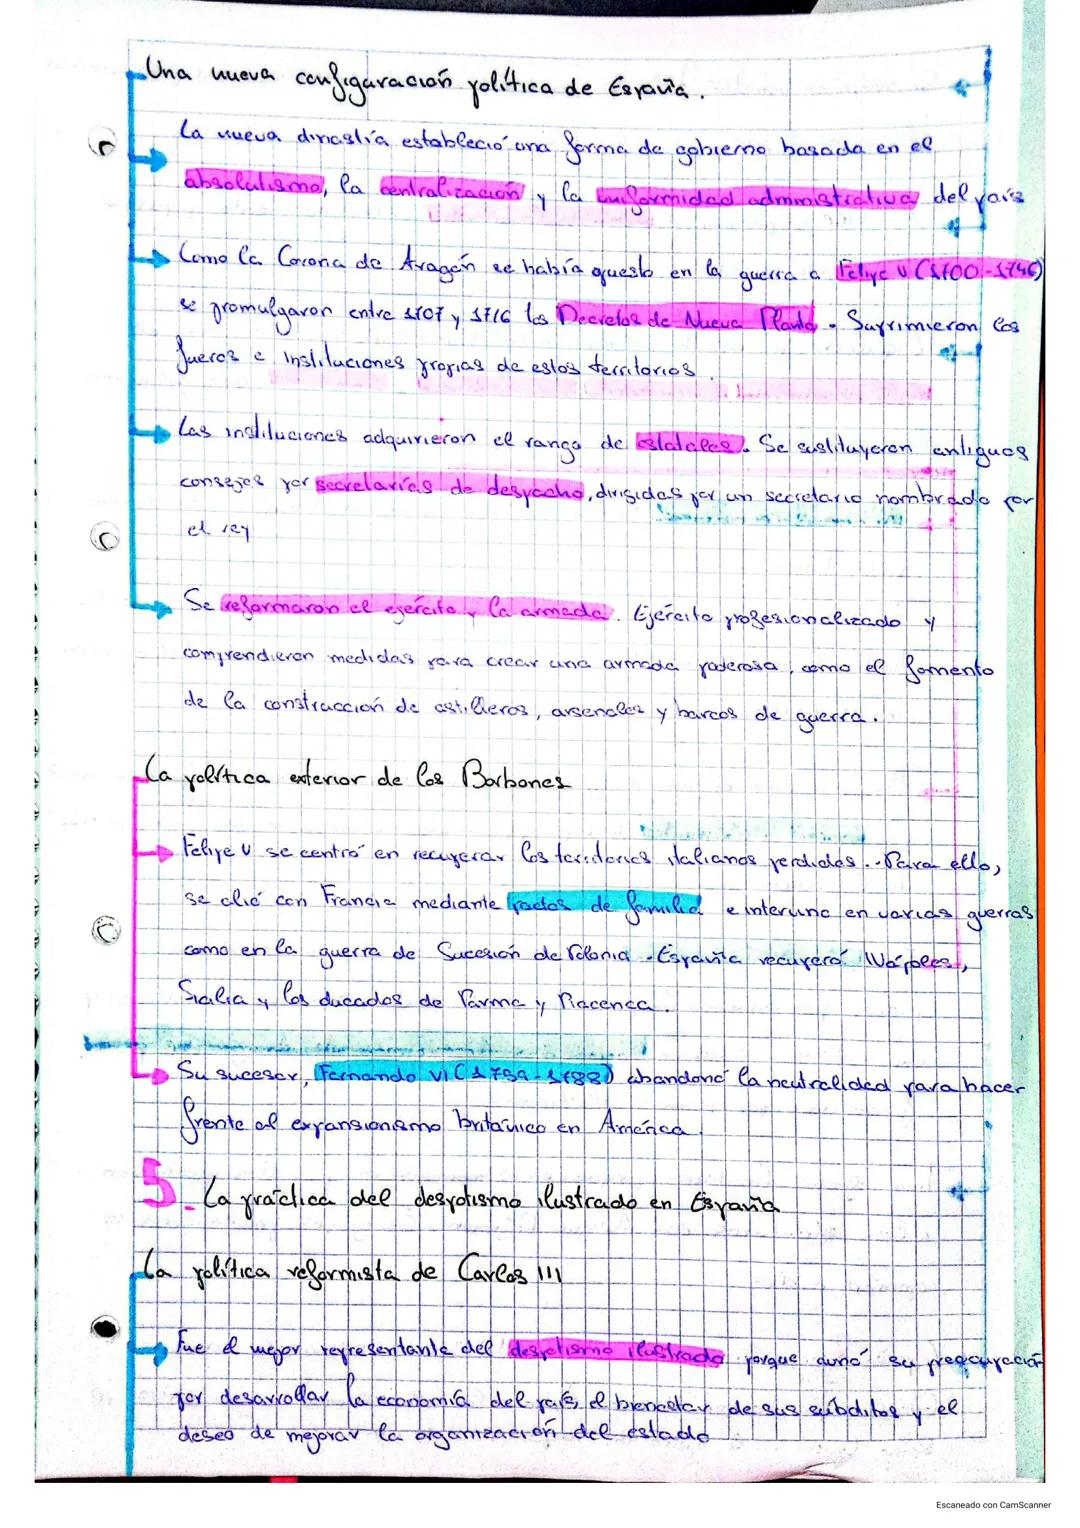 Una nueva configuración política de España.
La nueva dinastía estableció una forma de gobierno basada en el
absolutismo, la centralización y la uniformidad administrativa del país
Como la Corona de Aragón se había puesto en la guerra a Felipe V (1700-1746)
se promulgaron entre 1707 y 1716 los Decretos de Nueva Planta. Suprimieron los
fueros e instituciones propias de estos territorios.
Las instituciones adquirieron el rango de estatales. Se sustituyeron antiguos
consejos por secretarías de despacho, dirigidas por un secretario nombrado por
el rey
Se reformaron el ejército y la armada. Ejército profesionalizado y
comprendieron medidas para crear una armada poderosa, como el fomento
de la construcción de astilleros, arsenales y barcos de guerra.
La política exterior de los Borbones
Felipe V se centró en recuperar los territorios italianos perdidos. Para ello,
se alió con Francia mediante pactos de familia e intervino en varias guerras
como en la guerra de Sucesión de Polonia. España recuperó Nápoles,
Sicilia y los ducados de Parma y Piacenca.
Su sucesor, Fernando VI (1759-1788) abandonó la neutralidad para hacer
frente al expansionismo británico en América.
5. La práctica del despotismo ilustrado en España
La política reformista de Carlos III
Fue el mejor representante del despotismo ilustrado porque aunó su preocupación
por desarrollar la economía del país, el bienestar de sus súbditos y el
deseo de mejorar la organización del estado
Escaneado con CamScanner